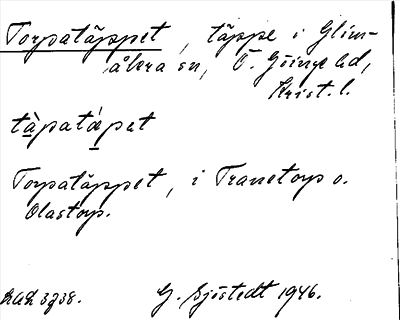 Torpatäppet, täppe i Glim-
åkra sn, Ö. Göinge hd,
Krist. l.
tàpatǽpet
Torpatäppet, i Tranetorp o.
Olastorp.
G. Sjöstedt 1946.